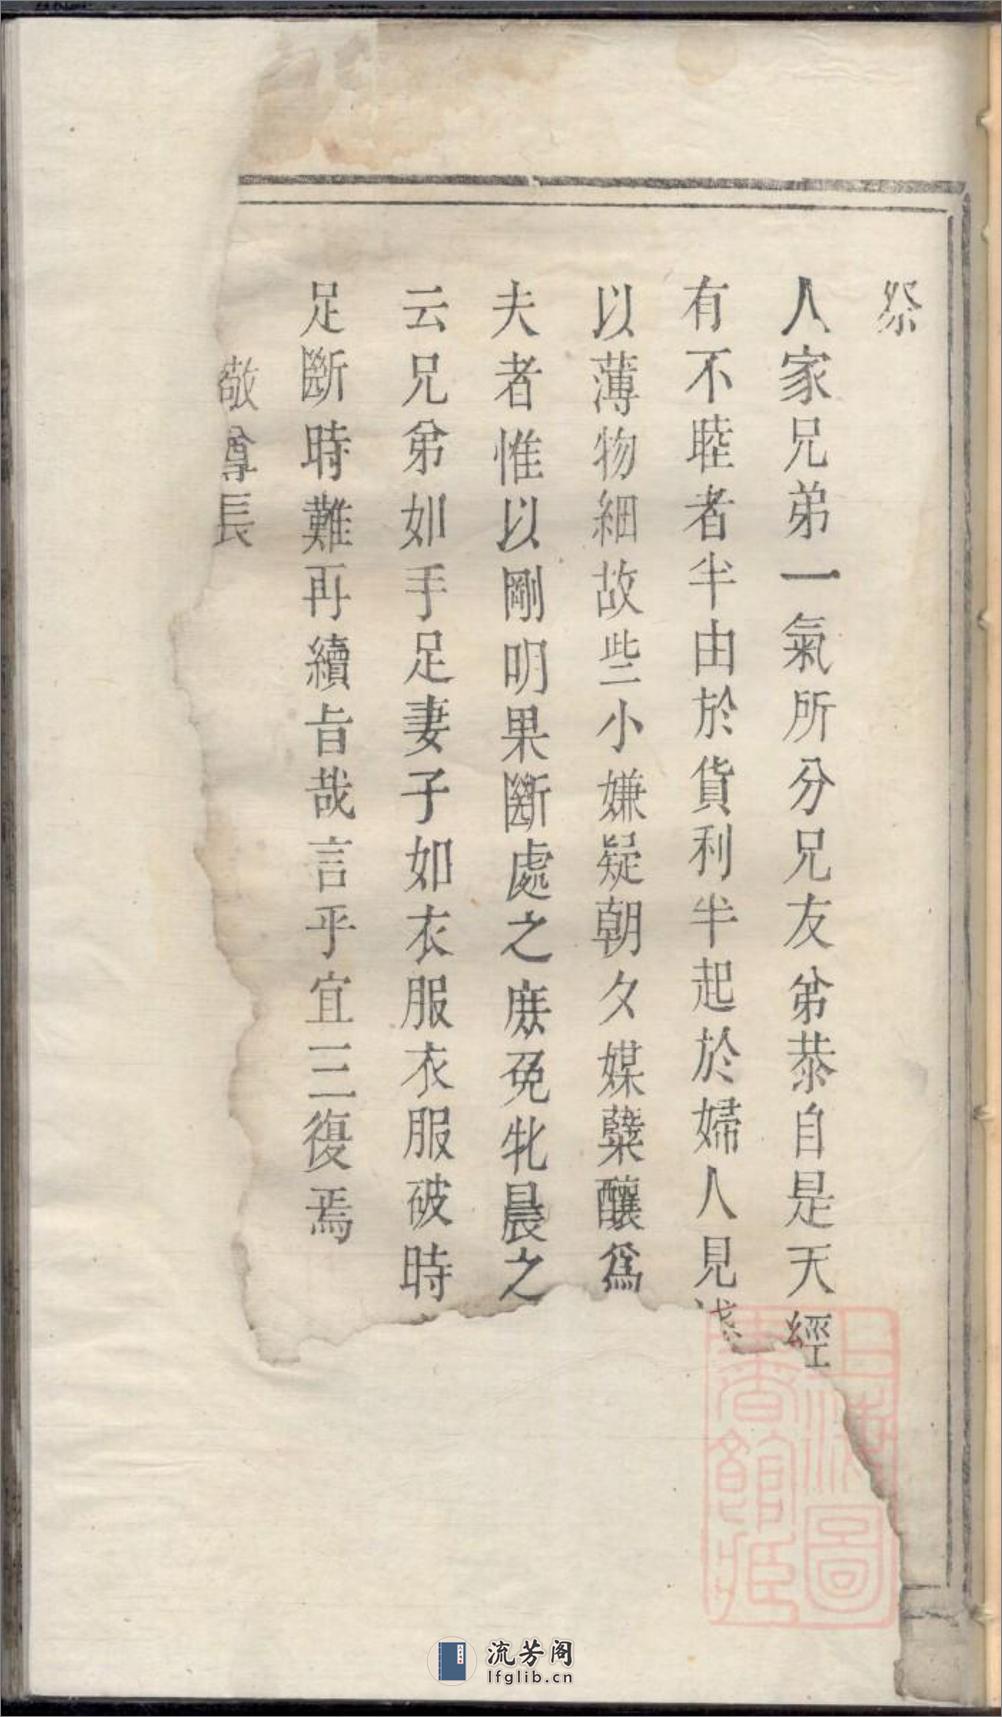 祭
人家兄弟一氣所分兄友弟恭自是天經
有不睦者半由於貨利半起於婦人見淺
以薄物細故些小嫌疑朝夕媒糵釀爲
夫者惟以剛明果斷處之庶免牝晨之
云兄弟如手足妻子如衣服衣服破時
足斷時難再續旨哉言乎宜三復焉
敬尊長
上海圖書館藏
流芳阁
lfglib.cn